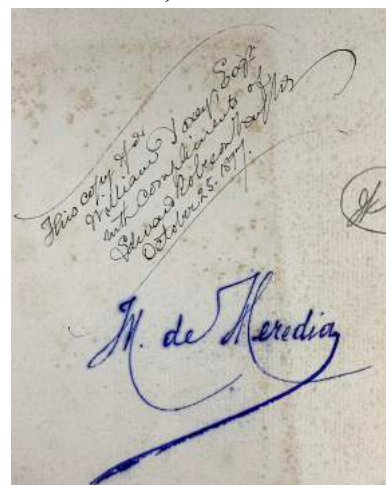 This copy for
William Doxey Esqr
with compliments of
Edward Robeson Taylor
October 25. 1897.
M. de Heredia